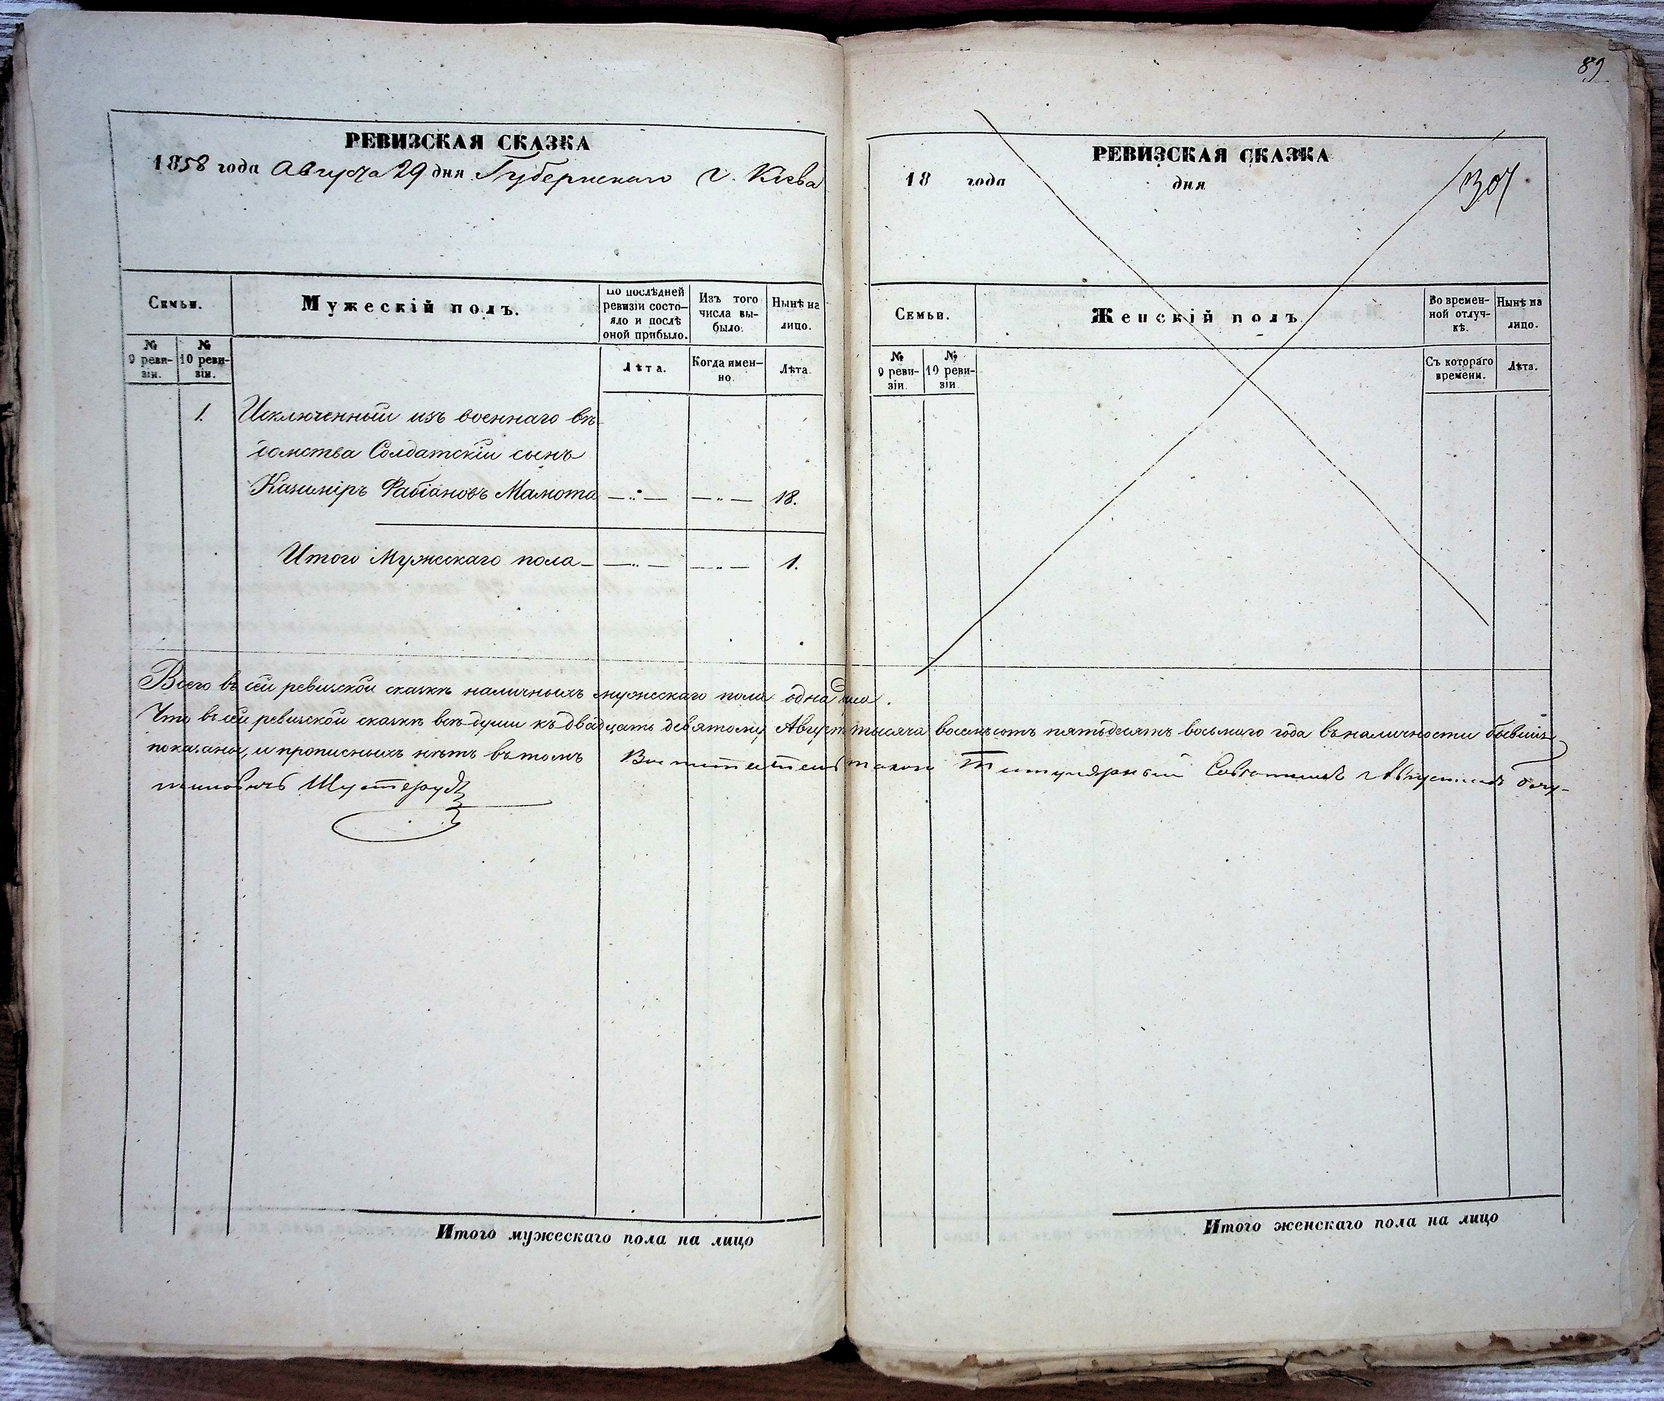 89
РЕВИЗСКАЯ СКАЗКА
1858 года Августа 29 дня Губернскаго г. Кіева
Семьи.
Мужескій полъ.
По послѣдней ревизіи состояло и послѣ оной прибыло.
Изъ того числа выбыло.
Нынѣ на лицо.
№ 9 ревизіи.
№ 10 ревизіи.
Лѣта.
Когда именно.
Лѣта.
1. Исключенный изъ военнаго вѣ-
домства Солдатскій сынъ
Казиміръ Фабіановъ Мамота — „ — — „ — 18.
Итого Мужескаго пола — — „ — — „ — 1.
РЕВИЗСКАЯ СКАЗКА
18 года дня
307
Семьи.
Женскій полъ.
Во временной отлучкѣ.
Нынѣ на лицо.
№ 9 ревизіи.
№ 10 ревизіи.
Съ котораго времени.
Лѣта.
Всего въ сей ревизской сказкѣ наличныхъ мужескаго пола одна
Что въ сей ревизской сказкѣ всѣ души къ двадцать девятому Август тысяча восемьсотъ пятьдесятъ восьмаго года въ наличности бывшія
показаны, и прописныхъ нѣтъ въ томъ Титулярный Совѣтникъ Августинъ
Итого мужескаго пола на лицо
Итого женскаго пола на лицо